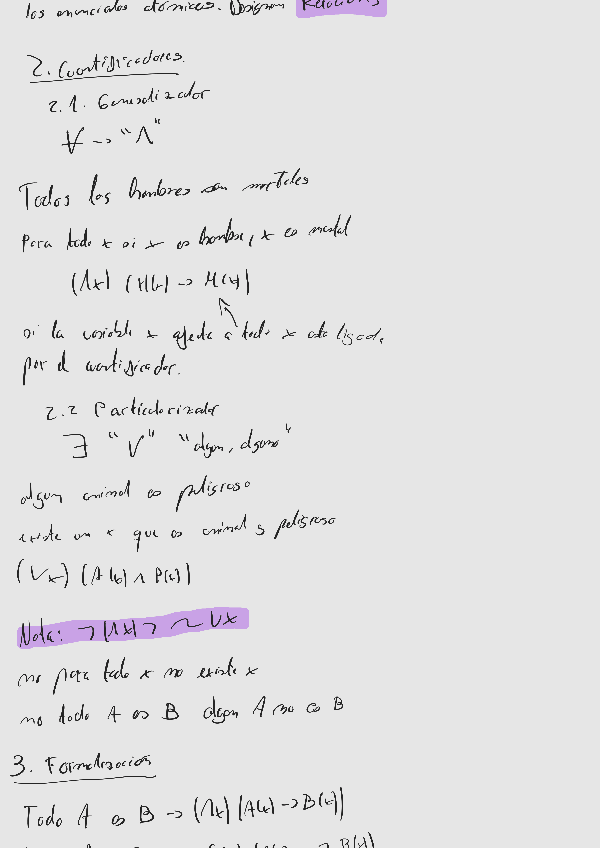 los enunciados atómicos. Designan Relaciones
2. Cuantificadores.
2.1. Generalizador
∀ -> "Λ"
Todos los hombres son mortales
Para todo x si x es hombre, x es mortal
(Λx) (H(x) -> M(x))
si la variable x afecta a todo x esta ligada
por el cuantificador.
2.2 Particularizador
∃ "V" "algun, alguno"
algun animal es peligroso
existe un x que es animal y peligroso
(Vx) (A(x) ∧ P(x))
Nota: ¬(Λx)¬ ~ Vx
no para todo x no existe x
no todo A es B algun A no es B
3. Formalización
Todo A es B -> (Λx) (A(x) -> B(x))